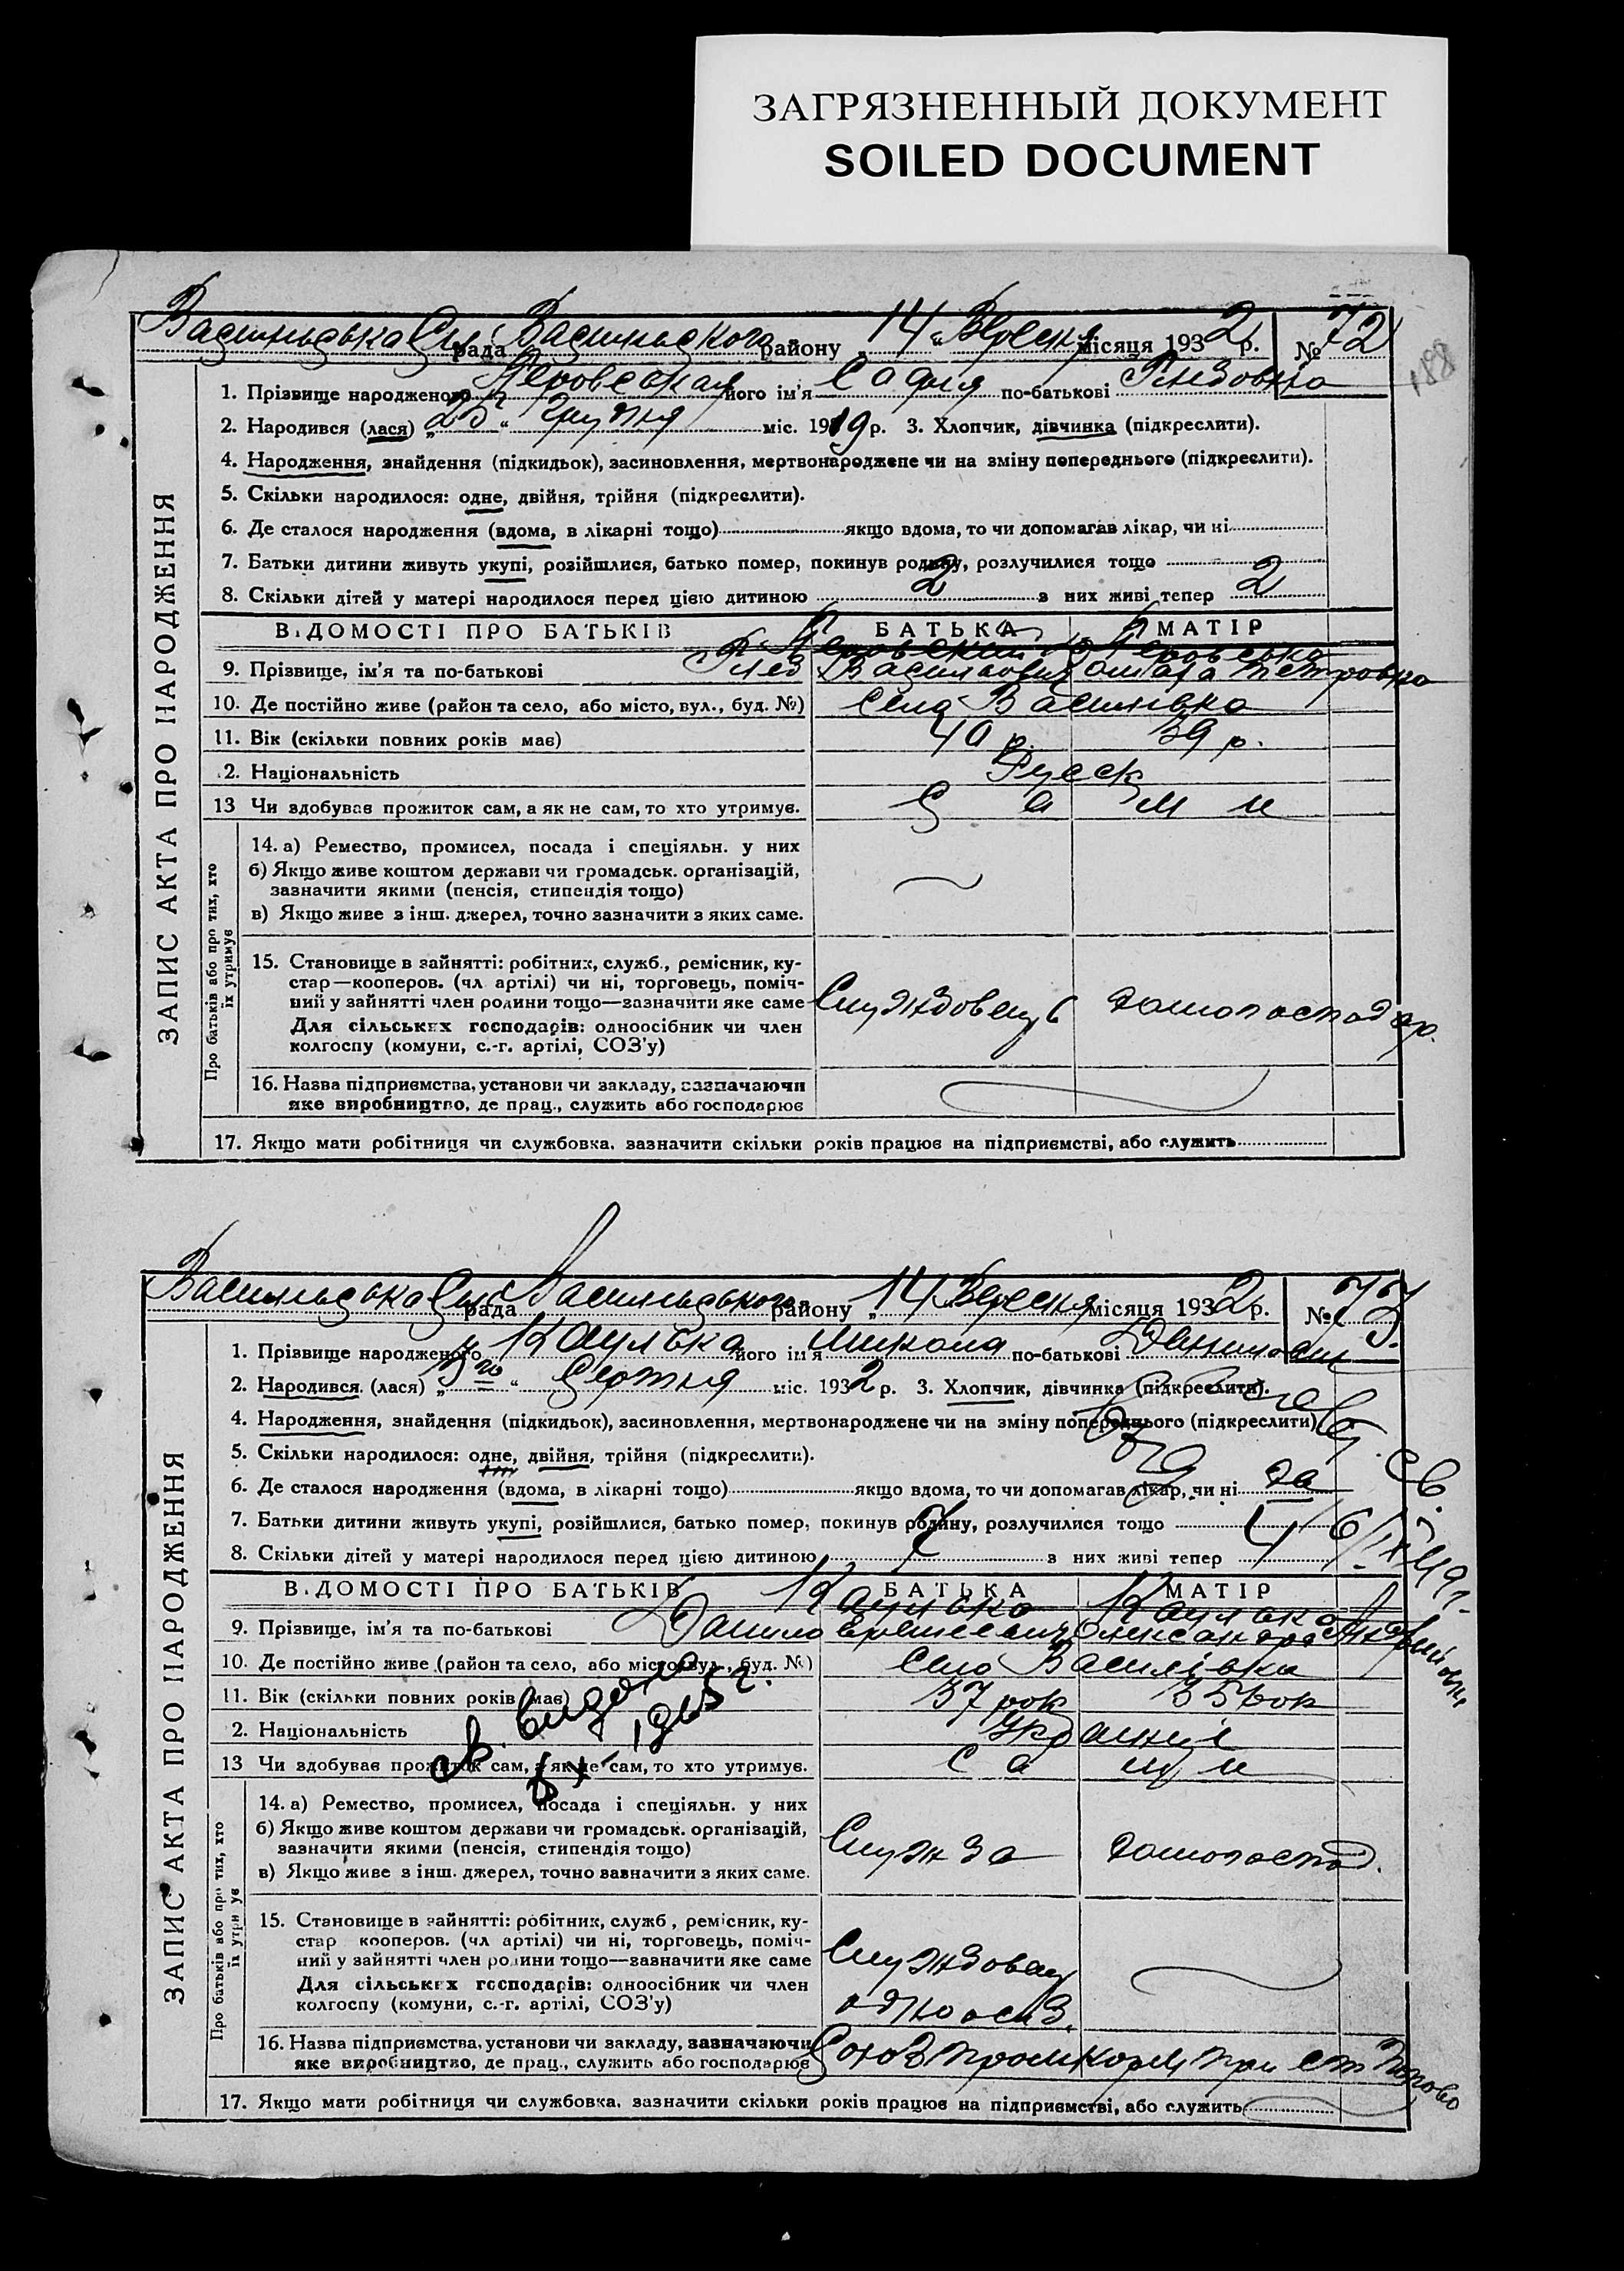 ЗАГРЯЗНЕННЫЙ ДОКУМЕНТ
SOILED DOCUMENT
188
рада району „14“ Вересня місяця 1932 р. № 72
1. Прізвище народженого його ім'я по-батькові
2. Народився (лася) „25“ Грудня міс. 1919 р. 3. Хлопчик, дівчинка (підкреслити).
4. Народження, знайдення (підкидьок), засиновлення, мертвонароджене чи на зміну попереднього (підкреслити).
5. Скільки народилося: одне, двійня, трійня (підкреслити).
6. Де сталося народження (вдома, в лікарні тощо) якщо вдома, то чи допомагав лікар, чи ні
7. Батьки дитини живуть укупі, розійшлися, батько помер, покинув родину, розлучилися тощо
8. Скільки дітей у матері народилося перед цією дитиною 2 з них живі тепер 2
ВІДОМОСТІ ПРО БАТЬКІВ БАТЬКА МАТІР
9. Прізвище, ім'я та по-батькові Петровна
10. Де постійно живе (район та село, або місто, вул., буд. №) Село Василівка
11. Вік (скільки повних років має) 40 р. 39 р.
.2. Національність Руск
13 Чи здобував прожиток сам, а як не сам, то хто утримує. С а м и
14. а) Ремество, промисел, посада і спеціяльн. у них
б) Якщо живе коштом держави чи громадськ. організацій,
зазначити якими (пенсія, стипендія тощо)
в) Якщо живе з інш. джерел, точно зазначити з яких саме.
15. Становище в зайнятті: робітник, служб., ремісник, ку-
стар—кооперов. (чл артілі) чи ні, торговець, поміч-
ний у зайнятті член родини тощо—зазначити яке саме Службовець домогосподар.
Для сільських господарів: одноосібник чи член
колгоспу (комуни, с.-г. артілі, СОЗ'у)
16. Назва підприємства, установи чи закладу, зазначаючи
яке виробництво, де прац., служить або господарює
17. Якщо мати робітниця чи службовка, зазначити скільки років працює на підприємстві, або служить
ЗАПИС АКТА ПРО НАРОДЖЕННЯ
Про батьків або про тих, хто
їх утримує
рада району „14“ Вересня місяця 1932 р. № 73
1. Прізвище народженого Каулька його ім'я Микола по-батькові Данилович
2. Народився (лася) „ “ Серпня міс. 1932 р. 3. Хлопчик, дівчинка (підкреслити).
4. Народження, знайдення (підкидьок), засиновлення, мертвонароджене чи на зміну попереднього (підкреслити)
5. Скільки народилося: одне, двійня, трійня (підкреслити).
6. Де сталося народження (вдома, в лікарні тощо) якщо вдома, то чи допомагав лікар, чи ні да
7. Батьки дитини живуть укупі, розійшлися, батько помер, покинув родину, розлучилися тощо
8. Скільки дітей у матері народилося перед цією дитиною 7 з них живі тепер 4
ВІДОМОСТІ ПРО БАТЬКІВ БАТЬКА МАТІР
Каулька Каулька
9. Прізвище, ім'я та по-батькові Данило Олександра
10. Де постійно живе (район та село, або місто, вул., буд. №) Село Василівка
11. Вік (скільки повних років має) 37 рок 35 рок
2. Національність Українці
13 Чи здобував прожиток сам, а як не сам, то хто утримує. с а м и
св. видано
1965 г.
14. а) Ремество, промисел, посада і спеціяльн. у них
б) Якщо живе коштом держави чи громадськ. організацій,
зазначити якими (пенсія, стипендія тощо) Служба домогоспод.
в) Якщо живе з інш. джерел, точно зазначити з яких саме.
15. Становище в зайнятті: робітник, служб., ремісник, ку-
стар кооперов. (чл артілі) чи ні, торговець, поміч-
ний у зайнятті член родини тощо—зазначити яке саме Службовец
Для сільських господарів: одноосібник чи член
колгоспу (комуни, с.-г. артілі, СОЗ'у) одноосиб.
16. Назва підприємства, установи чи закладу, зазначаючи
яке виробництво, де прац., служить або господарює при ст Попово
17. Якщо мати робітниця чи службовка, зазначити скільки років працює на підприємстві, або служить
ЗАПИС АКТА ПРО НАРОДЖЕННЯ
Про батьків або про тих, хто
їх утримує